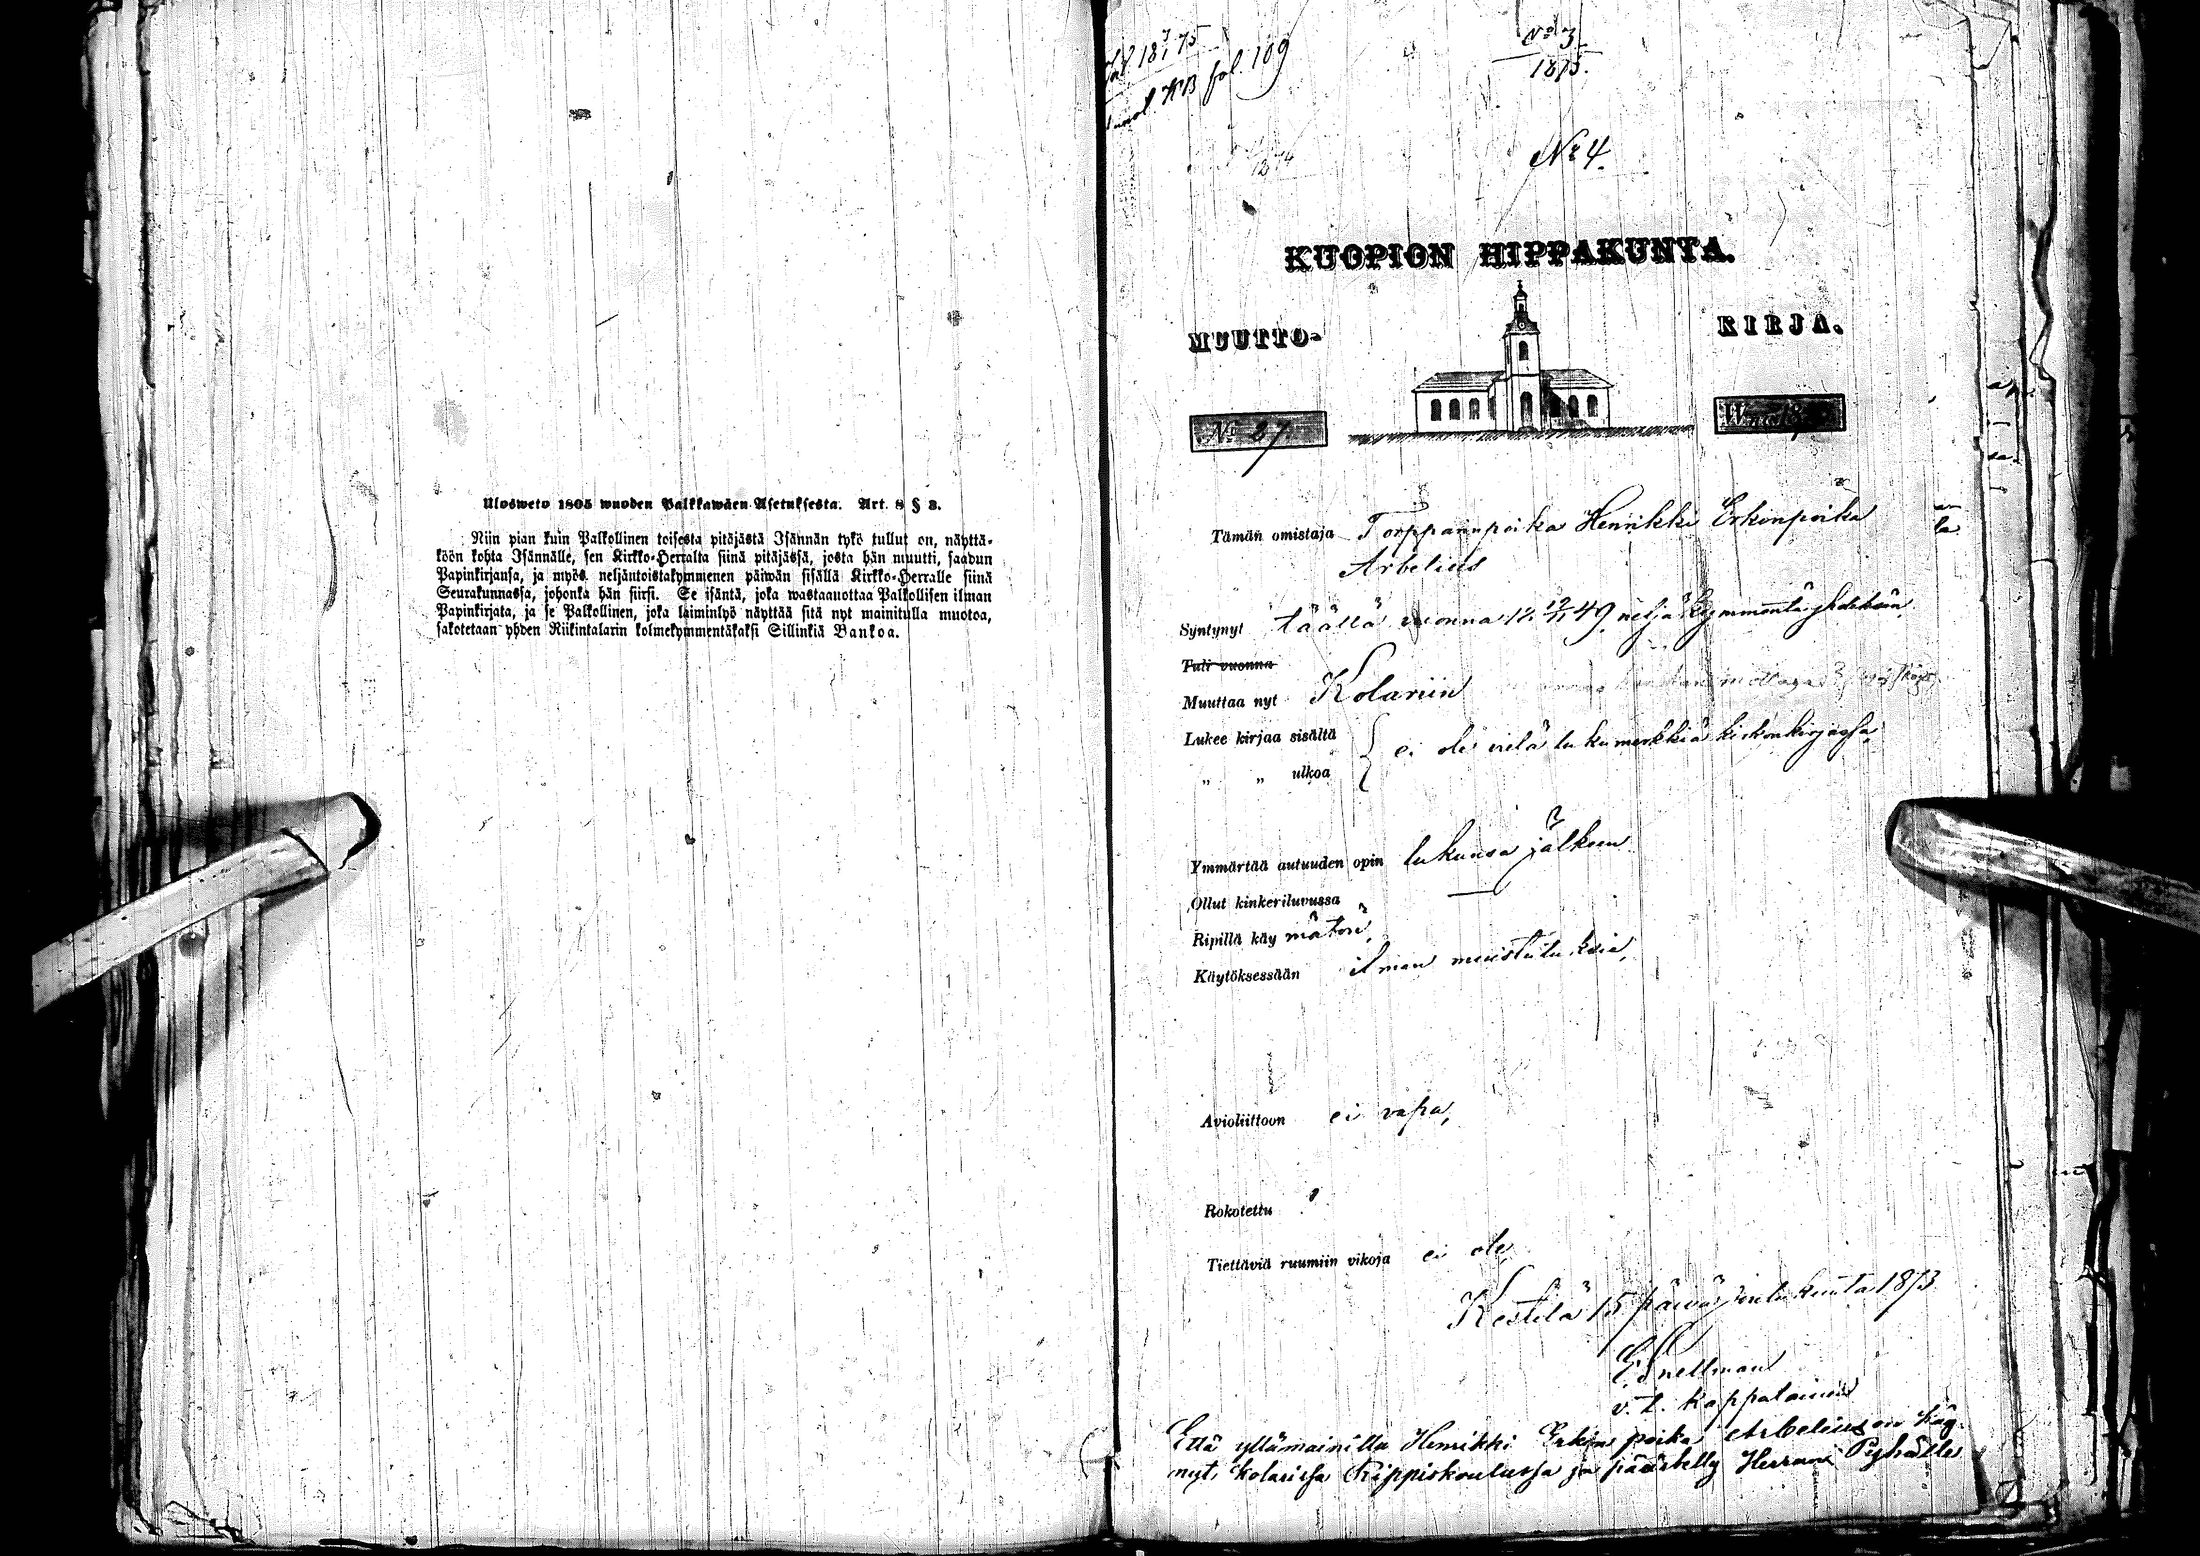 Ulosweto 1805 wuoden Palkkawäen Asetuksesta. Art. 8 § 3.
Niin pian kuin Palkollinen toisesta pitäjästä Isännän tykö tullut on, näyttä-
köön kohta Isännälle, sen Kirkko-Herralta siinä pitäjässä, josta hän muutti, saadun
Papinkirjansa, ja myös neljäntoistakymmenen päiwän sisällä Kirkko-Herralle siinä
Seurakunnassa, johonka hän siirsi. Se isäntä, joka wastaanottaa Palkollisen ilman
Papinkirjata, ja se Palkollinen, joka laiminlyö näyttää sitä nyt mainitulla muotoa,
sakotetaan yhden Riikintalarin kolmekymmentäkaksi Sillinkiä Bankoa.
KB fol. 109
No 3
1875.
No 4.
KUOPION HIPPAKUNTA.
MUUTTO- KIRJA.
No 27.
Tämän omistaja Torpparinpoika Henrikki Erkinpoika
Arbelius
Syntynyt täällä vuonna 49 neljäkymmentäyhdeksän
Tuli vuonna
Muuttaa nyt Kolariin
Lukee kirjaa sisältä
ei ole vielä lukumerkkiä kirkonkirjassa,
„ „ ulkoa
Ymmärtää autuuden opin lukunsa jälkeen
Ollut kinkeriluvussa —
Ripillä käy
Käytöksessään ilman muistutuksia,
Avioliittoon ei vapa,
Rokotettu
Tiettäviä ruumiin vikoja ei ole,
Kestilä 15 päivä joulukuuta 1873
E Snellman
v. t. Kappalainen
Että yllämainittu Henrikki Erkinpoika Arbelius on käy-
nyt, Kolarissa Rippikoulussa ja päästetty Herran Pyhälle